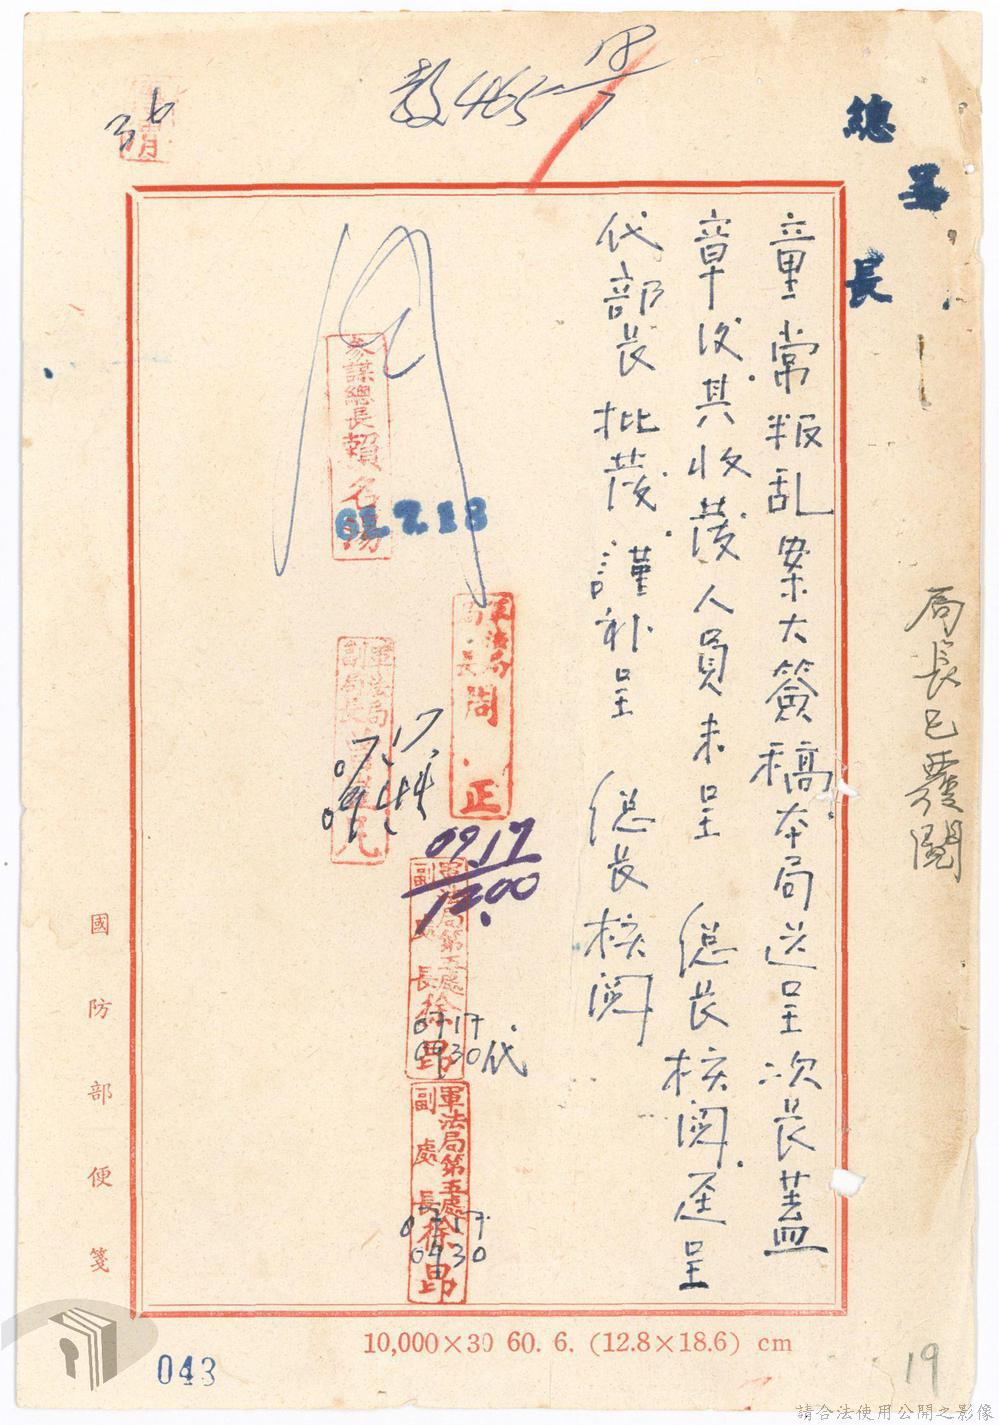 教465
總長
童常叛乱案大簽稿本局送呈次長蓋
章後.其收發人員未呈 总長核閱.逕呈
代部長批發.謹补呈 总長核閱
局長已覆閱
參謀總長賴名湯
61.7.18
軍法局局長周正
軍法局副局長
07.17.
09.17
12.00
軍法局第五處副處長徐昂
0717
0930代
軍法局第五處副處長徐昂
0717
0930
國防部便箋
10,000×30 60. 6. (12.8×18.6) cm
043
19
請合法使用公開之影像